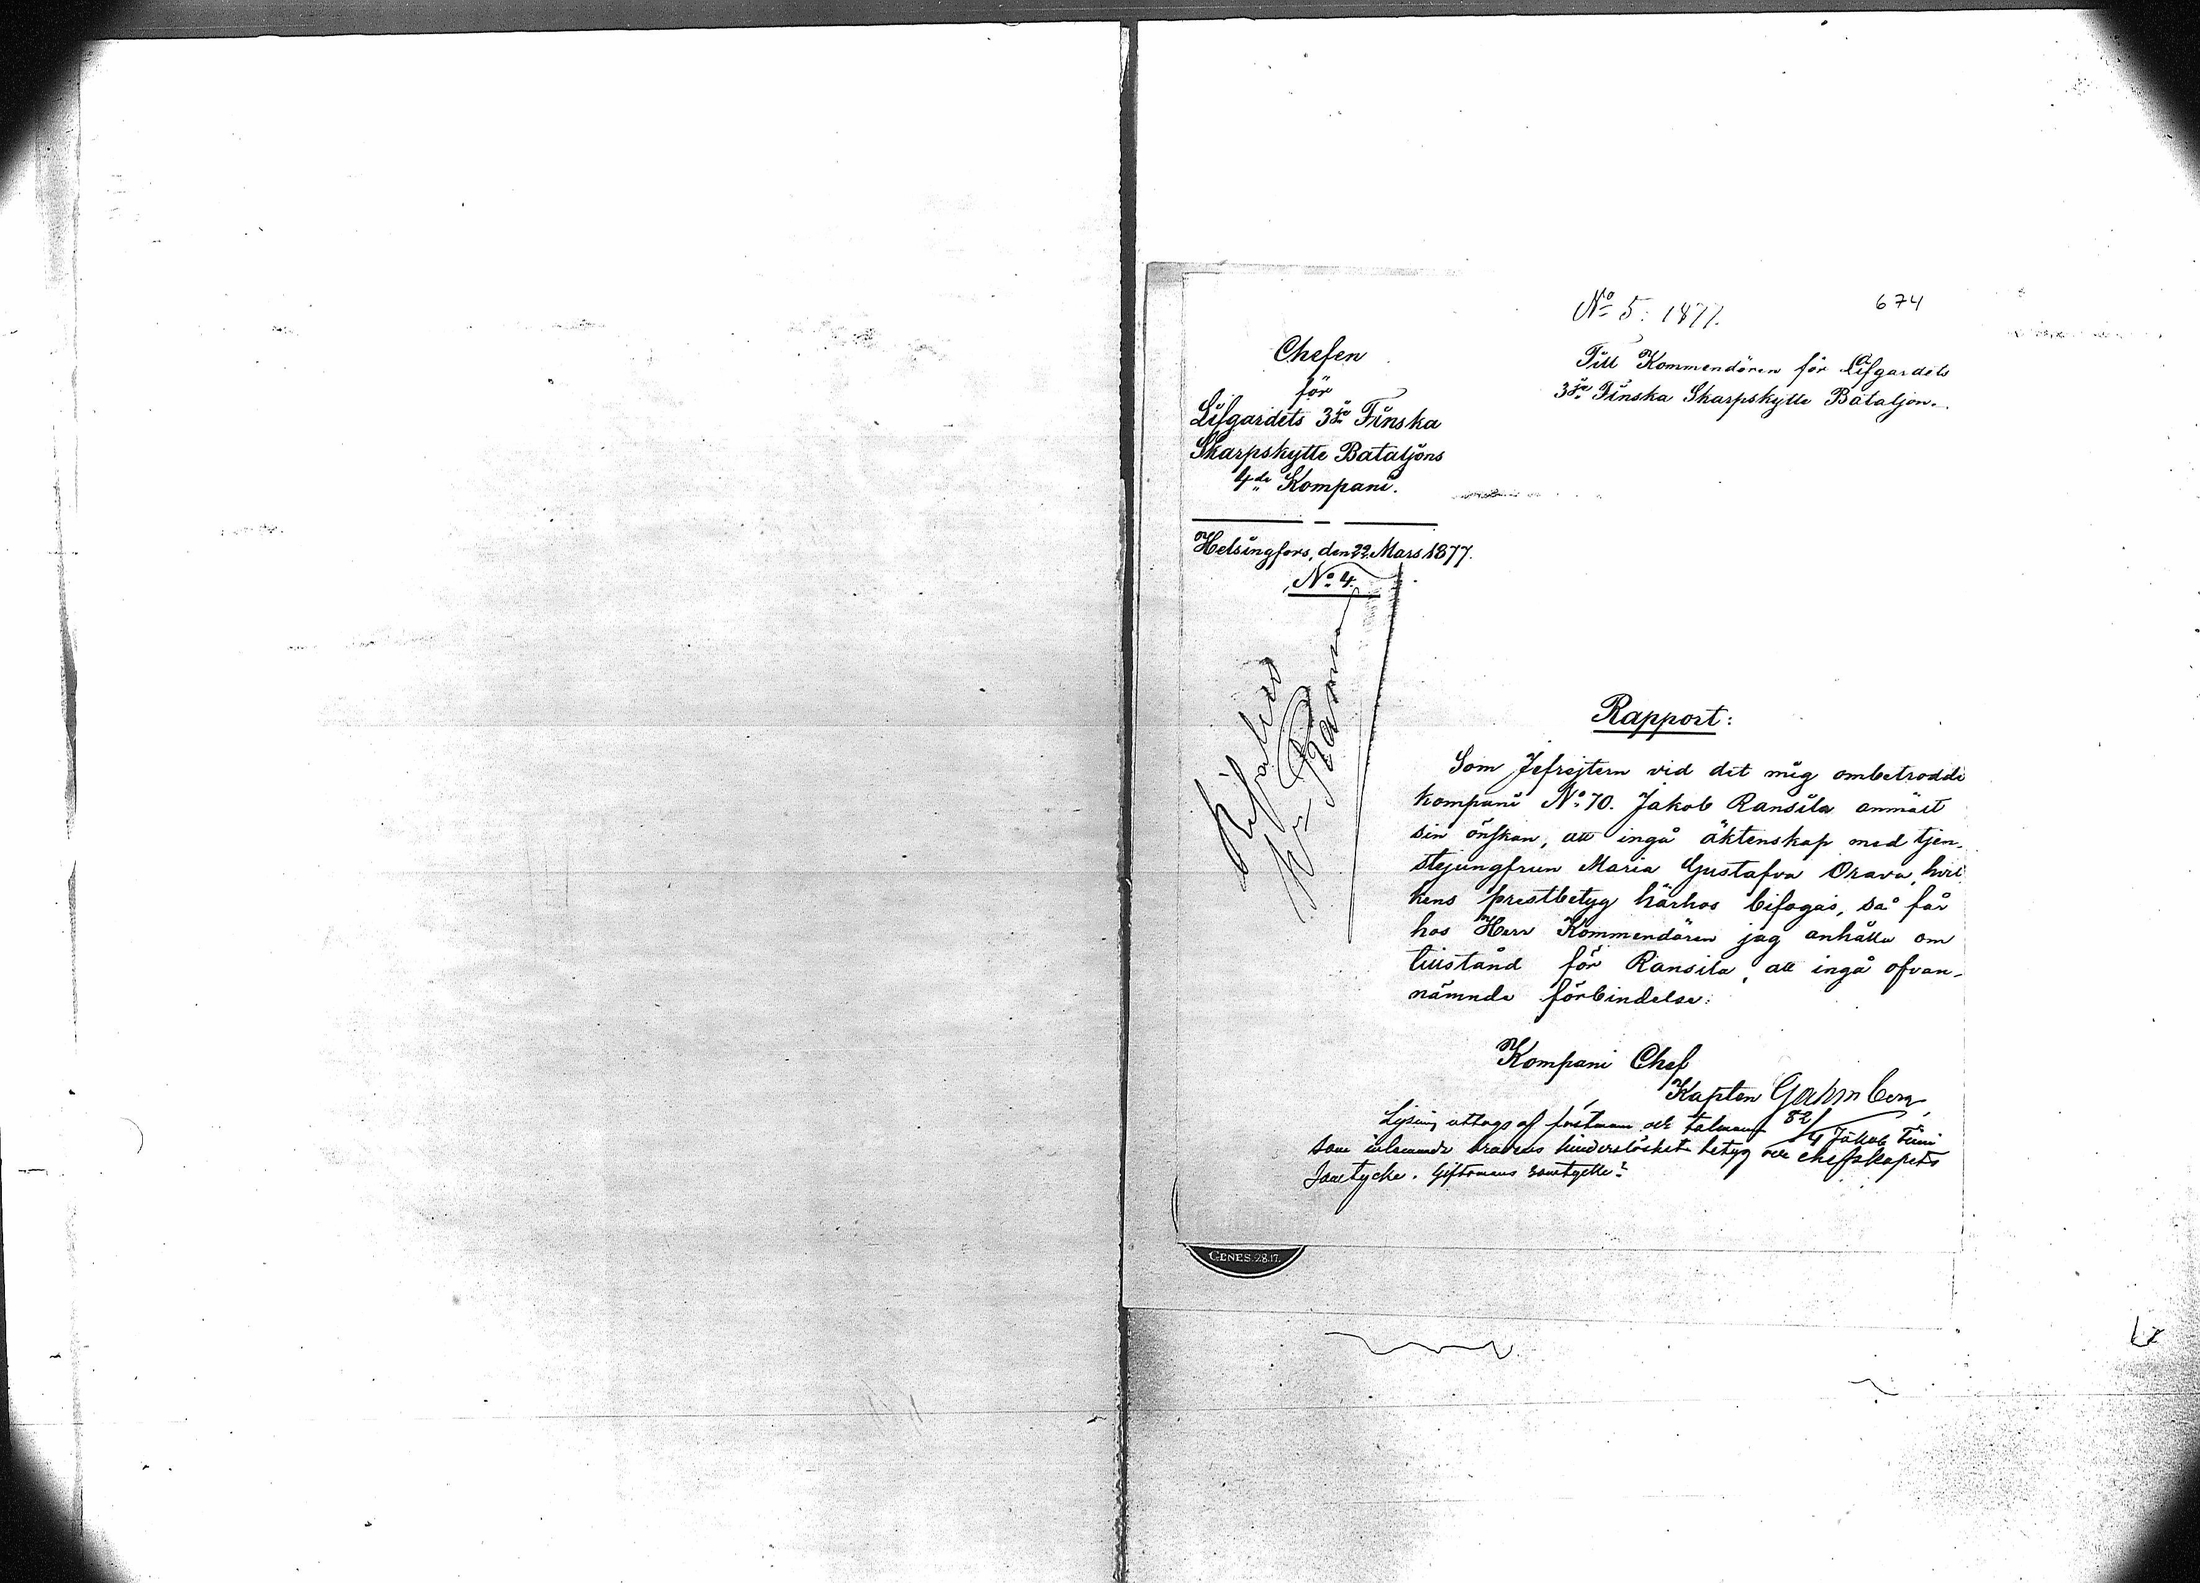 № 5. 1877.
674
Chefen
för
Lifgardets 3dje Finska
Skarpskytte Bataljons
4de Kompani.
Helsingfors, den 22 Mars 1877.
№ 4.
Till Kommendören för Lifgardets
3dje Finska Skarpskytte Bataljon.
Bifalles
Rapport:
Som Jefrejtern vid det mig ombetrodde
kompani № 70. Jakob Ransila anmält
sin önskan, att ingå äktenskap med tjen-
stejungfrun Maria Gustafva Orava, hvil
kens prestbetyg härhos bifogas, så får
hos Herr Kommendören jag anhålla om
tillstånd för Ransila, att ingå ofvan-
nämnde förbindelse.
Kompani Chef
Kapten Gahmberg
Lysning uttogs af förstman och talman Jakob
som inlemnade brudens hinderslöshets betyg och chefskapets
Samtycke. Giftomans samtycke?
GENES. 28.17.